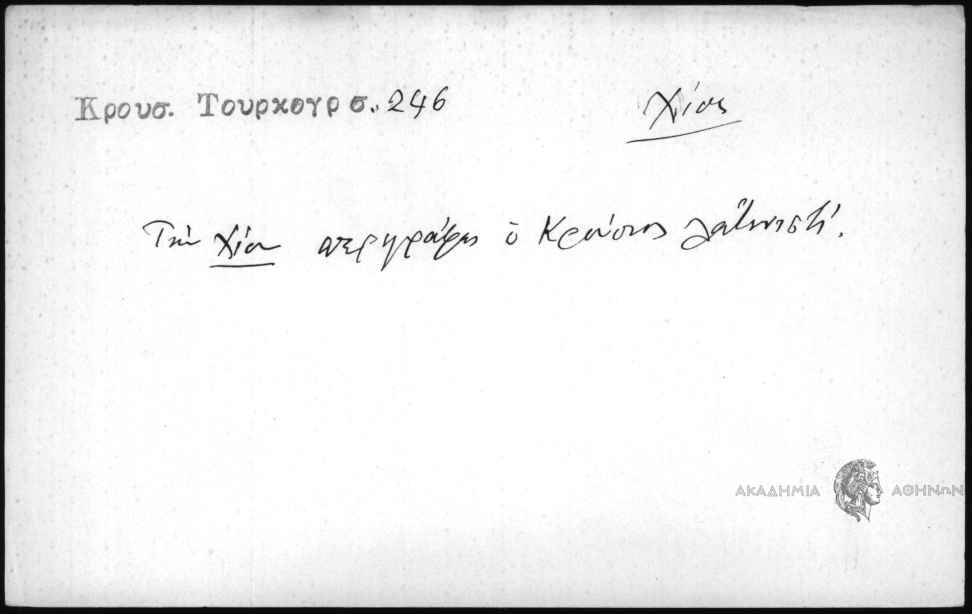 Κρουσ. Τουρκογρ σ. 246
Χίος
Τὴν Χίον περιγράφει ὁ Κρούσιος λατινιστί.
ΑΚΑΔΗΜΙΑ ΑΘΗΝΩΝ